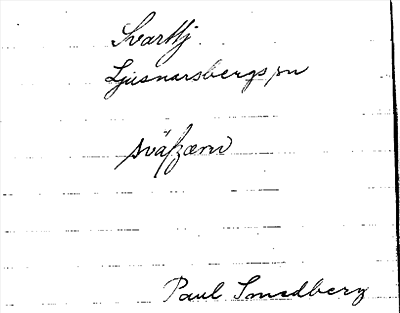 Svarttj.
Ljusnarsbergs sn
svätzærn
Paul Smedberg